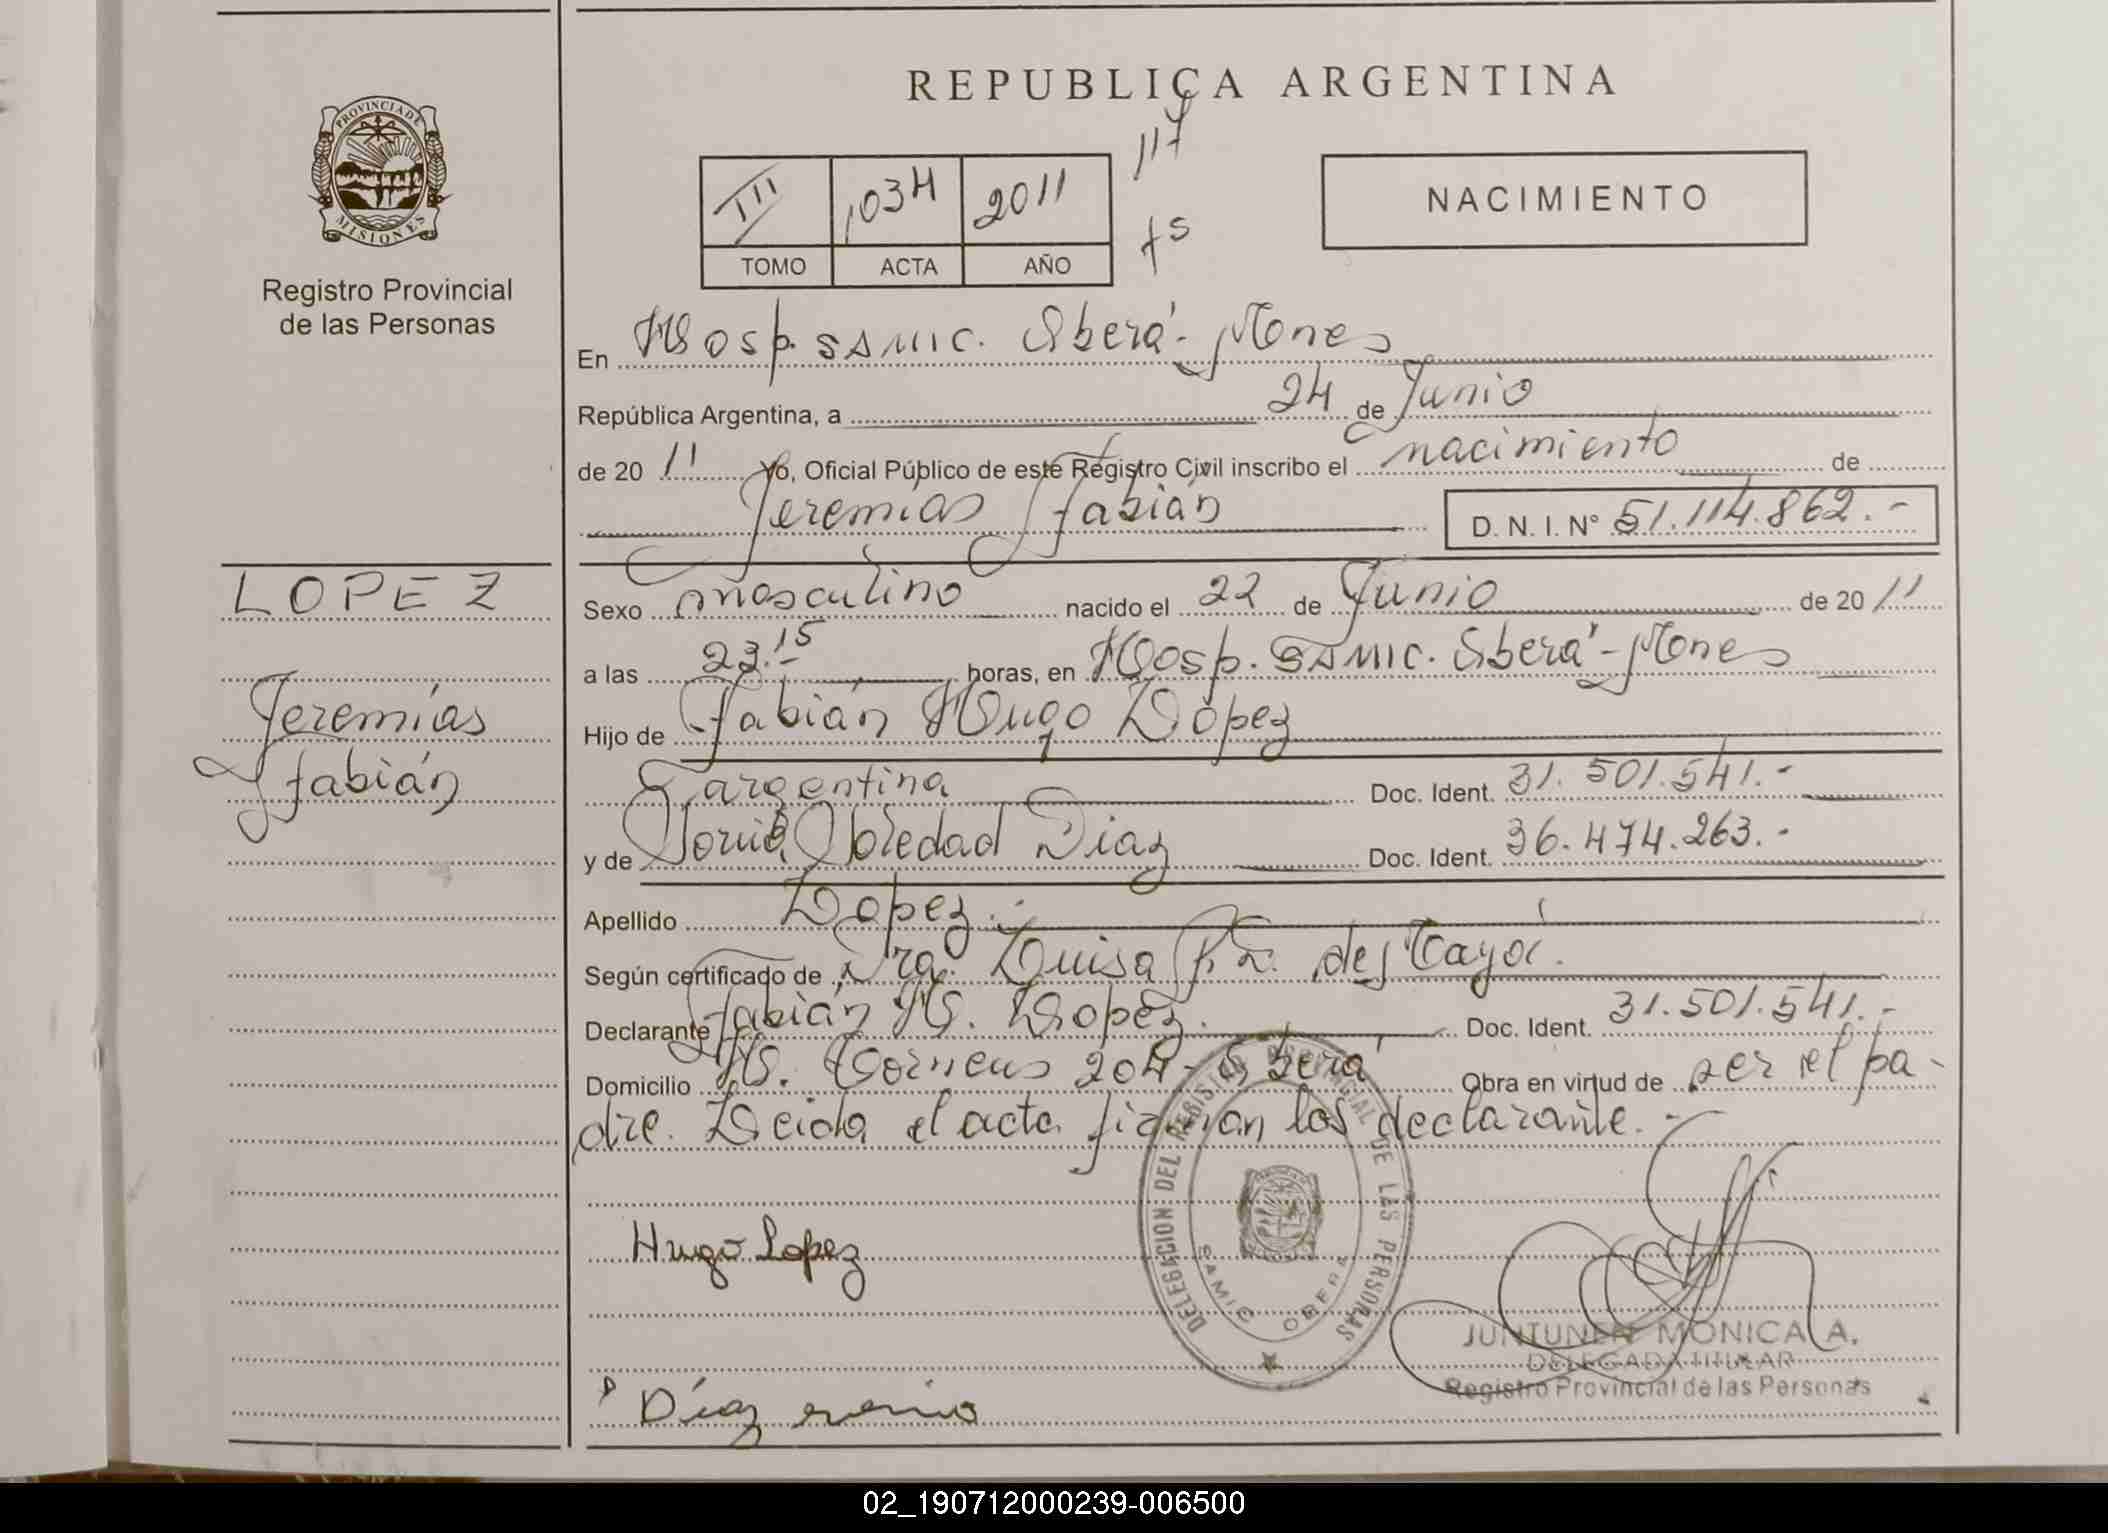 REPUBLICA ARGENTINA
117
PROVINCIA DE
MISIONES
Registro Provincial
de las Personas
III 1034 2011
TOMO ACTA AÑO
NACIMIENTO
En Hosp. SAMIC. Oberá - Mones
República Argentina, a 24 de Junio
de 20 11 Yo, Oficial Público de este Registro Civil inscribo el nacimiento de
Jeremías Fabián D. N. I. N° 51.114.862.-
LOPEZ
Jeremías
Fabián
Sexo masculino nacido el 22 de Junio de 20 11
a las 23.15 horas, en Hosp. SAMIC. Oberá - Mones
Hijo de Fabián Hugo López
argentina Doc. Ident. 31.501.541.-
y de Soledad Diaz Doc. Ident. 36.474.263.-
Apellido Lopez.-
Según certificado de Dra. Luisa
Declarante Fabián H. Lopez. Doc. Ident. 31.501.541.-
Domicilio 204 - Oberá Obra en virtud de ser el pa-
dre. Leida el acta firman los declarante.-
Hugo Lopez
Díaz
DELEGACION DEL REGISTRO PROVINCIAL DE LAS PERSONAS
SAMIC OBERA
JUNTUNEN MONICA A.
DELEGADA TITULAR
Registro Provincial de las Personas
02_190712000239-006500